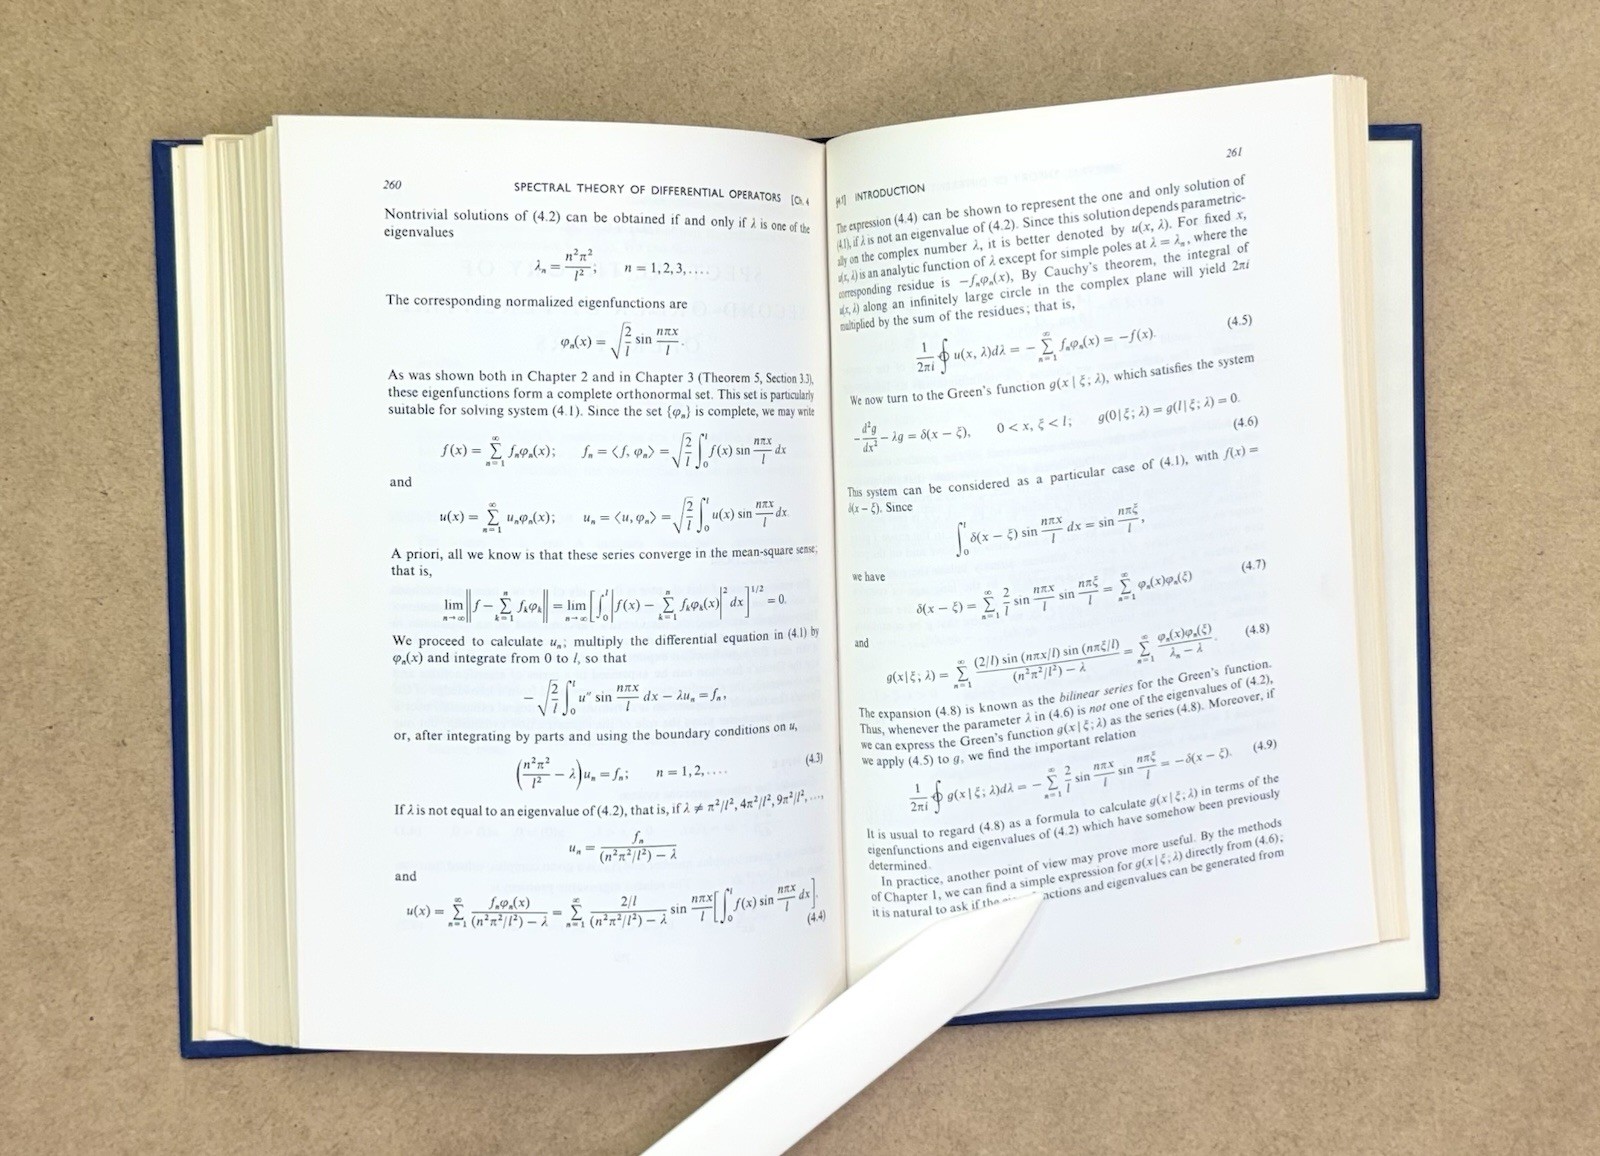 260 SPECTRAL THEORY OF DIFFERENTIAL OPERATORS [Ch. 4
Nontrivial solutions of (4.2) can be obtained if and only if λ is one of the
eigenvalues
λₙ = n²π²/l²; n = 1, 2, 3, ....
The corresponding normalized eigenfunctions are
φₙ(x) = √(2/l) sin nπx/l.
As was shown both in Chapter 2 and in Chapter 3 (Theorem 5, Section 3.3),
these eigenfunctions form a complete orthonormal set. This set is particularly
suitable for solving system (4.1). Since the set {φₙ} is complete, we may write
f(x) = ∑_{n=1}^{∞} fₙφₙ(x); fₙ = ⟨f, φₙ⟩ = √(2/l) ∫₀ˡ f(x) sin nπx/l dx
and
u(x) = ∑_{n=1}^{∞} uₙφₙ(x); uₙ = ⟨u, φₙ⟩ = √(2/l) ∫₀ˡ u(x) sin nπx/l dx.
A priori, all we know is that these series converge in the mean-square sense;
that is,
lim_{n→∞} ‖f − ∑_{k=1}^{n} fₖφₖ‖ = lim_{n→∞} [∫₀ˡ |f(x) − ∑_{k=1}^{n} fₖφₖ(x)|² dx]^{1/2} = 0.
We proceed to calculate uₙ; multiply the differential equation in (4.1) by
φₙ(x) and integrate from 0 to l, so that
− √(2/l) ∫₀ˡ u″ sin nπx/l dx − λuₙ = fₙ,
or, after integrating by parts and using the boundary conditions on u,
(n²π²/l² − λ)uₙ = fₙ; n = 1, 2, .... (4.3)
If λ is not equal to an eigenvalue of (4.2), that is, if λ ≠ π²/l², 4π²/l², 9π²/l², ...,
uₙ = fₙ/((n²π²/l²) − λ)
and
u(x) = ∑_{n=1}^{∞} fₙφₙ(x)/((n²π²/l²) − λ) = ∑_{n=1}^{∞} (2/l)/((n²π²/l²) − λ) sin nπx/l [∫₀ˡ f(x) sin nπx/l dx].
(4.4)
261
[4.1] INTRODUCTION
The expression (4.4) can be shown to represent the one and only solution of
(4.1), if λ is not an eigenvalue of (4.2). Since this solution depends parametric-
ally on the complex number λ, it is better denoted by u(x, λ). For fixed x,
u(x, λ) is an analytic function of λ except for simple poles at λ = λₙ, where the
corresponding residue is −fₙφₙ(x), By Cauchy's theorem, the integral of
u(x, λ) along an infinitely large circle in the complex plane will yield 2πi
multiplied by the sum of the residues; that is,
1/2πi ∮ u(x, λ)dλ = − ∑_{n=1}^{∞} fₙφₙ(x) = −f(x). (4.5)
We now turn to the Green's function g(x | ξ; λ), which satisfies the system
−d²g/dx² − λg = δ(x − ξ), 0 < x, ξ < l; g(0 | ξ; λ) = g(l | ξ; λ) = 0.
(4.6)
This system can be considered as a particular case of (4.1), with f(x) =
δ(x − ξ). Since
∫₀ˡ δ(x − ξ) sin nπx/l dx = sin nπξ/l,
we have
δ(x − ξ) = ∑_{n=1}^{∞} 2/l sin nπx/l sin nπξ/l = ∑_{n=1}^{∞} φₙ(x)φₙ(ξ) (4.7)
and
g(x | ξ; λ) = ∑_{n=1}^{∞} (2/l) sin (nπx/l) sin (nπξ/l)/((n²π²/l²) − λ) = ∑_{n=1}^{∞} φₙ(x)φₙ(ξ)/(λₙ − λ). (4.8)
The expansion (4.8) is known as the bilinear series for the Green's function.
Thus, whenever the parameter λ in (4.6) is not one of the eigenvalues of (4.2),
we can express the Green's function g(x | ξ; λ) as the series (4.8). Moreover, if
we apply (4.5) to g, we find the important relation
1/2πi ∮ g(x | ξ; λ)dλ = − ∑_{n=1}^{∞} 2/l sin nπx/l sin nπξ/l = −δ(x − ξ). (4.9)
It is usual to regard (4.8) as a formula to calculate g(x | ξ; λ) in terms of the
eigenfunctions and eigenvalues of (4.2) which have somehow been previously
determined.
In practice, another point of view may prove more useful. By the methods
of Chapter 1, we can find a simple expression for g(x | ξ; λ) directly from (4.6);
it is natural to ask if the and eigenvalues can be generated from